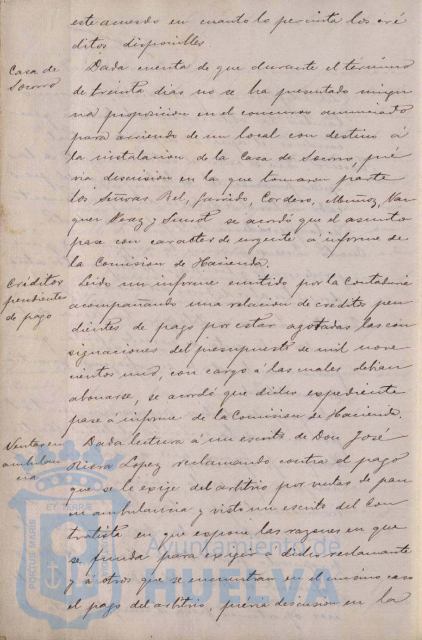 este acuerdo en cuanto lo permita los cré
ditos disponibles.
Casa de
Socorro
Dada cuenta de que durante el término
de treinta dias no se ha presentado ningu
na proposicion en el concurso anunciado
para arriendo de un local con destino á
la instalacion de la Casa de Socorro, pré
via discusion en la que tomaron parte
los Señores Bel, Garrido, Cordero, Muñoz, Vaz
quez Perez y se acordó que el asunto
pase con caracter de urgente á informe de
la Comision de Hacienda.
Créditos
pendientes
de pago
Leido un informe emitido por la Contaduria
acompañando una relacion de créditos pen
dientes de pago por estar agotadas las con
signaciones del presupuesto de mil nove
cientos uno, con cargo á las cuales debian
abonarse, se acordó que dicho expediente
pase á informe de la Comision de Hacienda.
Ventas en
ambulan
cia
Dada lectura á un escrito de Don José
Riera Lopez reclamando contra el pago
que se le exige del arbitrio por ventas de pan
en ambulancia y visto un escrito del Con
tratista en que expone las razones en que
se funda para exigir á dicho reclamante
y á otros que se encuentran en el mismo caso
el pago del arbitrio, prévia discusion en la
PORTUS MARIS ET TERRÆ
Ayuntamiento de
HUELVA